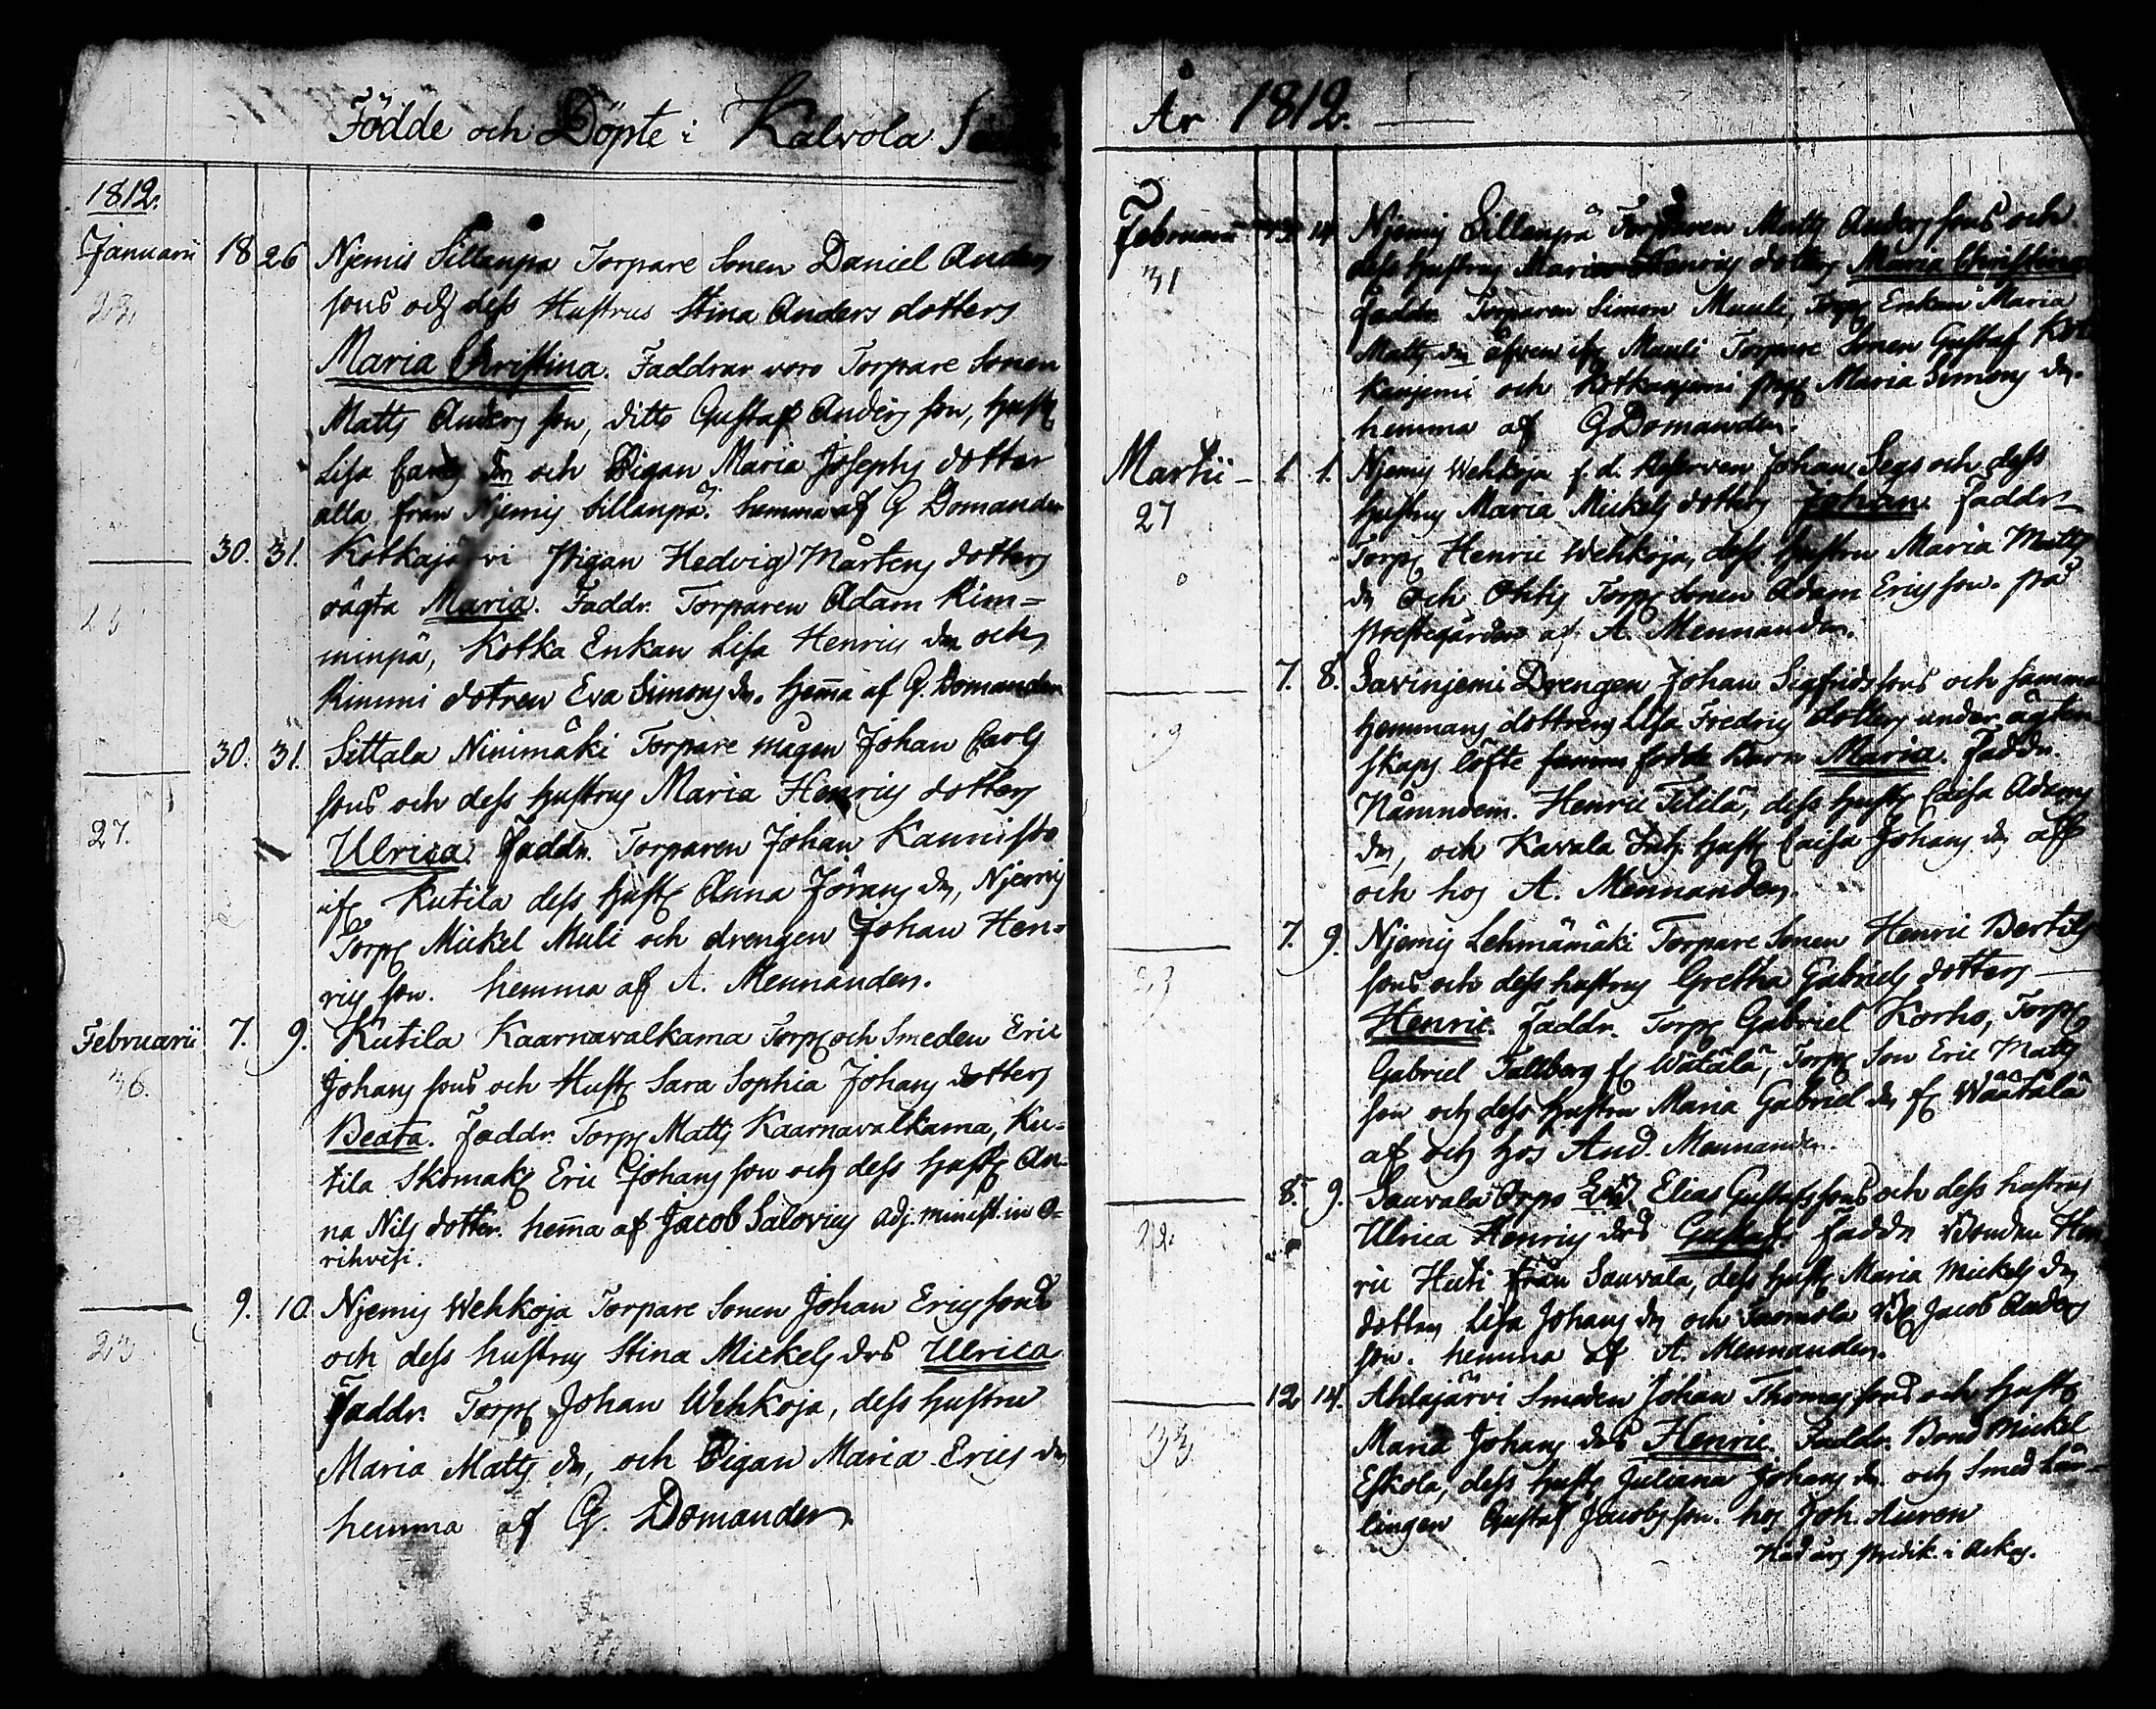 Födde och Döpte i Kalvola
1812.
Januarii 18 26 Njemis Sillanpä Torpare Sonen Daniel Anders
23
sons och dess Hustrus Stina Anders dotters
Maria Christina. Faddrar voro Torpare Sonen
Matts Anders son, ditto Gustaf Anders son, hust
Lisa Carls dr och Pigan Maria Josephs dotter
alla från Njemis Sillanpä. hemma af G Domander
30. 31. Kotkajärvi Pigan Hedvig Mårtens dotters
oägta Maria. Faddr. Torparen Adam Rim=
minpä, Kotka Enkan Lisa Henrics dr och
Rimmi dotren Eva Simons dr. hema af G. Domander
30. 31. Sittala Ninimäki Torpare mågen Johan Carls
sons och dess hustrus Maria Henrics dotters
27.
Ulrica. Faddr. Torparen Johan Kaunisto
if Kutila dess hust Anna Jörans dr, Njemis
Torp Mickel Muli och drengen Johan Hen=
rics son. hemma af A. Mennander.
Februarii 7. 9. Kutila Kaarnavalkama Torp och Smeden Eric
36.
Johans sons och Hust Sara Sophia Johans dotters
Beata. Faddr. Torp Matts Kaarnavalkama, Ku=
tila Skomak Eric Johans son och dess hust An=
na Nils dotter. hema af Jacob Salovius adj. minist. in O=
rihvesi.
9. 10. Njemis Wehkoja Torpare Sonen Johan Erics sons
och dess hustrus Stina Mickels drs Ulrica
23
Faddr. Torp Johan Wehkoja, dess hustru
Maria Matts dr, och Pigan Maria Erics dr
hemma af G. Domander.
År 1812.
Februarii 13 14 Njemis Sillanpä Torparen Matts Anders sons och
31
dess hustrus Maria Henrics dotters Maria Christina
Faddr. Torparen Simon Muuli, Torp Enkan Maria
Matts dr äfven if Mauli Torpare Sonen Gustaf Kot
kanjemi och Kotkanjemi pig Maria Simons dr.
hemma af G Domander.
Martii 1. 1. Njemis Wehkoja f. d. Reserven Johan Segs och dess
27
hustrus Maria Mickels dotters Johan. Faddr.
Torp Henric Wehkoja, dess hustru Maria Matts
dr och Ohtis Torp Sonen Adam Erics son. på
prestegården af A. Mennander.
7. 8. Savinjemi Drengen Johan Sigfrids sons och samma
hemmans dottrens Lisa Fredrics dotters under ägten
skaps löfte födde barn Maria. Faddr.
Nämndem. Henric Tetilä, dess hust Caisa Adams
dr, och Kavala hust Caisa Johans dr af
och hos A. Mennander.
7. 9. Njemis Lehmämäki Torpare Sonen Henric Bertils
23
sons och dess hustrus Gretha Gabriels dotters
Henric. Faddr. Torp Gabriel Korho, Torp
Gabriel Tallberg f Wätälä, Torp Son Eric Matts
son och dess hustru Maria Gabriel dr f Wäätälä
af och hos And. Mennander.
8. 9. Sauvala Orpo Elias Gustafs sons och dess hustrus
22
Ulrica Henrics drs Gustaf. Faddr Bonden Hen
ric Huti från Sauvala, dess hust Maria Mickels dr
dotter Lisa Johans dr och Taomola Jacob Anders
son. hemma af A. Mennander.
12 14. Ahlajärvi Smeden Johan Thomas sons och hust
33
Maria Johans drs Henric. Faddr. Bond Mickel
Eskola, dess hust Juliana Johans dr. och Smed Lär=
lingen Gustaf Jacobs son. hos Joh. Auren
Nådårs predik. i Ackas.